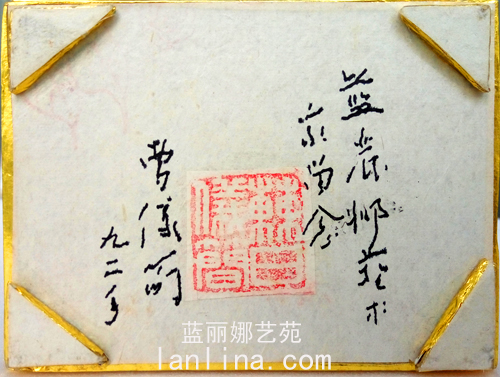 蓝丽娜艺术
家留念
曹儀简
九二年
蓝丽娜艺苑
lanlina.com